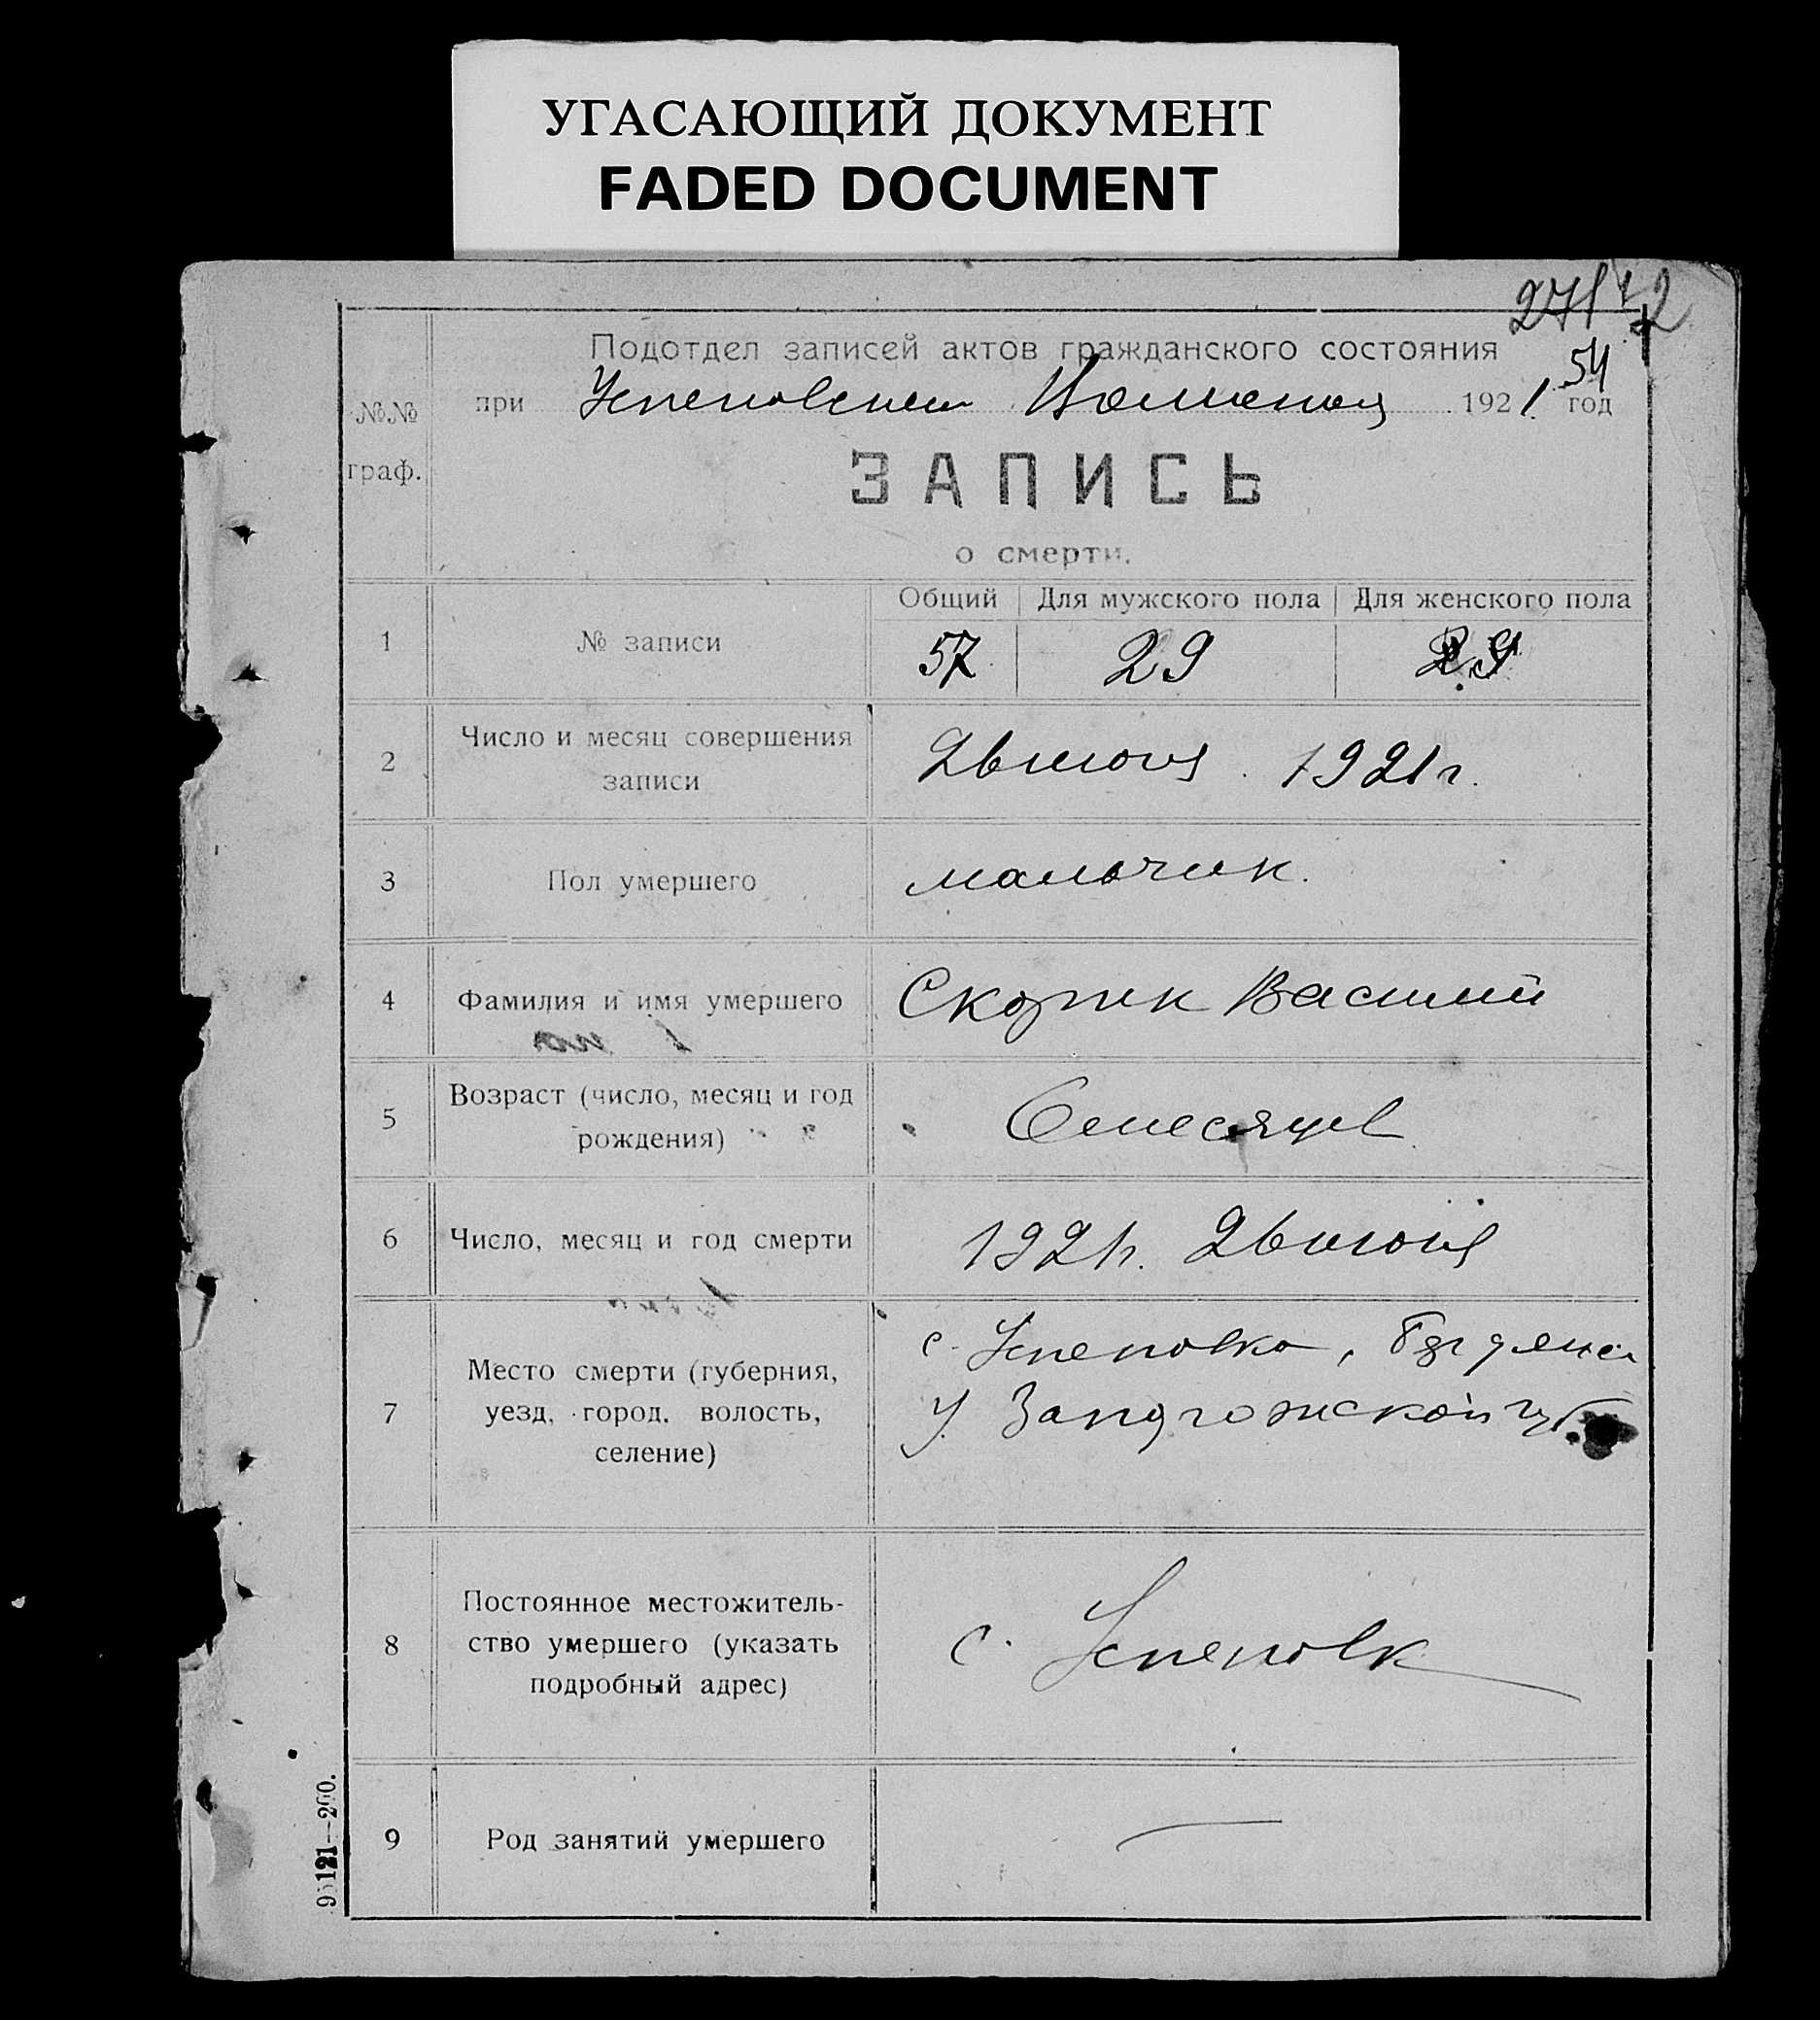 УГАСАЮЩИЙ ДОКУМЕНТ
FADED DOCUMENT
54
Подотдел записей актов гражданского состояния
№№ граф.
при Успеновском 1921 год
ЗАПИСЬ
о смерти.
Общий Для мужского пола Для женского пола
1 № записи 57 29 29
2 Число и месяц совершения 26 июня 1921 г.
записи
3 Пол умершего мальчик.
4 Фамилия и имя умершего Скорик Василий
5 Возраст (число, месяц и год рождения) 6 месяцев
6 Число, месяц и год смерти 1921 г. 26 июня
7 Место смерти (губерния, с. Успеновка, Бердянск
уезд, город, волость, у. Запорожской губ
селение)
8 Постоянное местожитель-
ство умершего (указать с. Успеновк
подробный адрес)
9 Род занятий умершего —